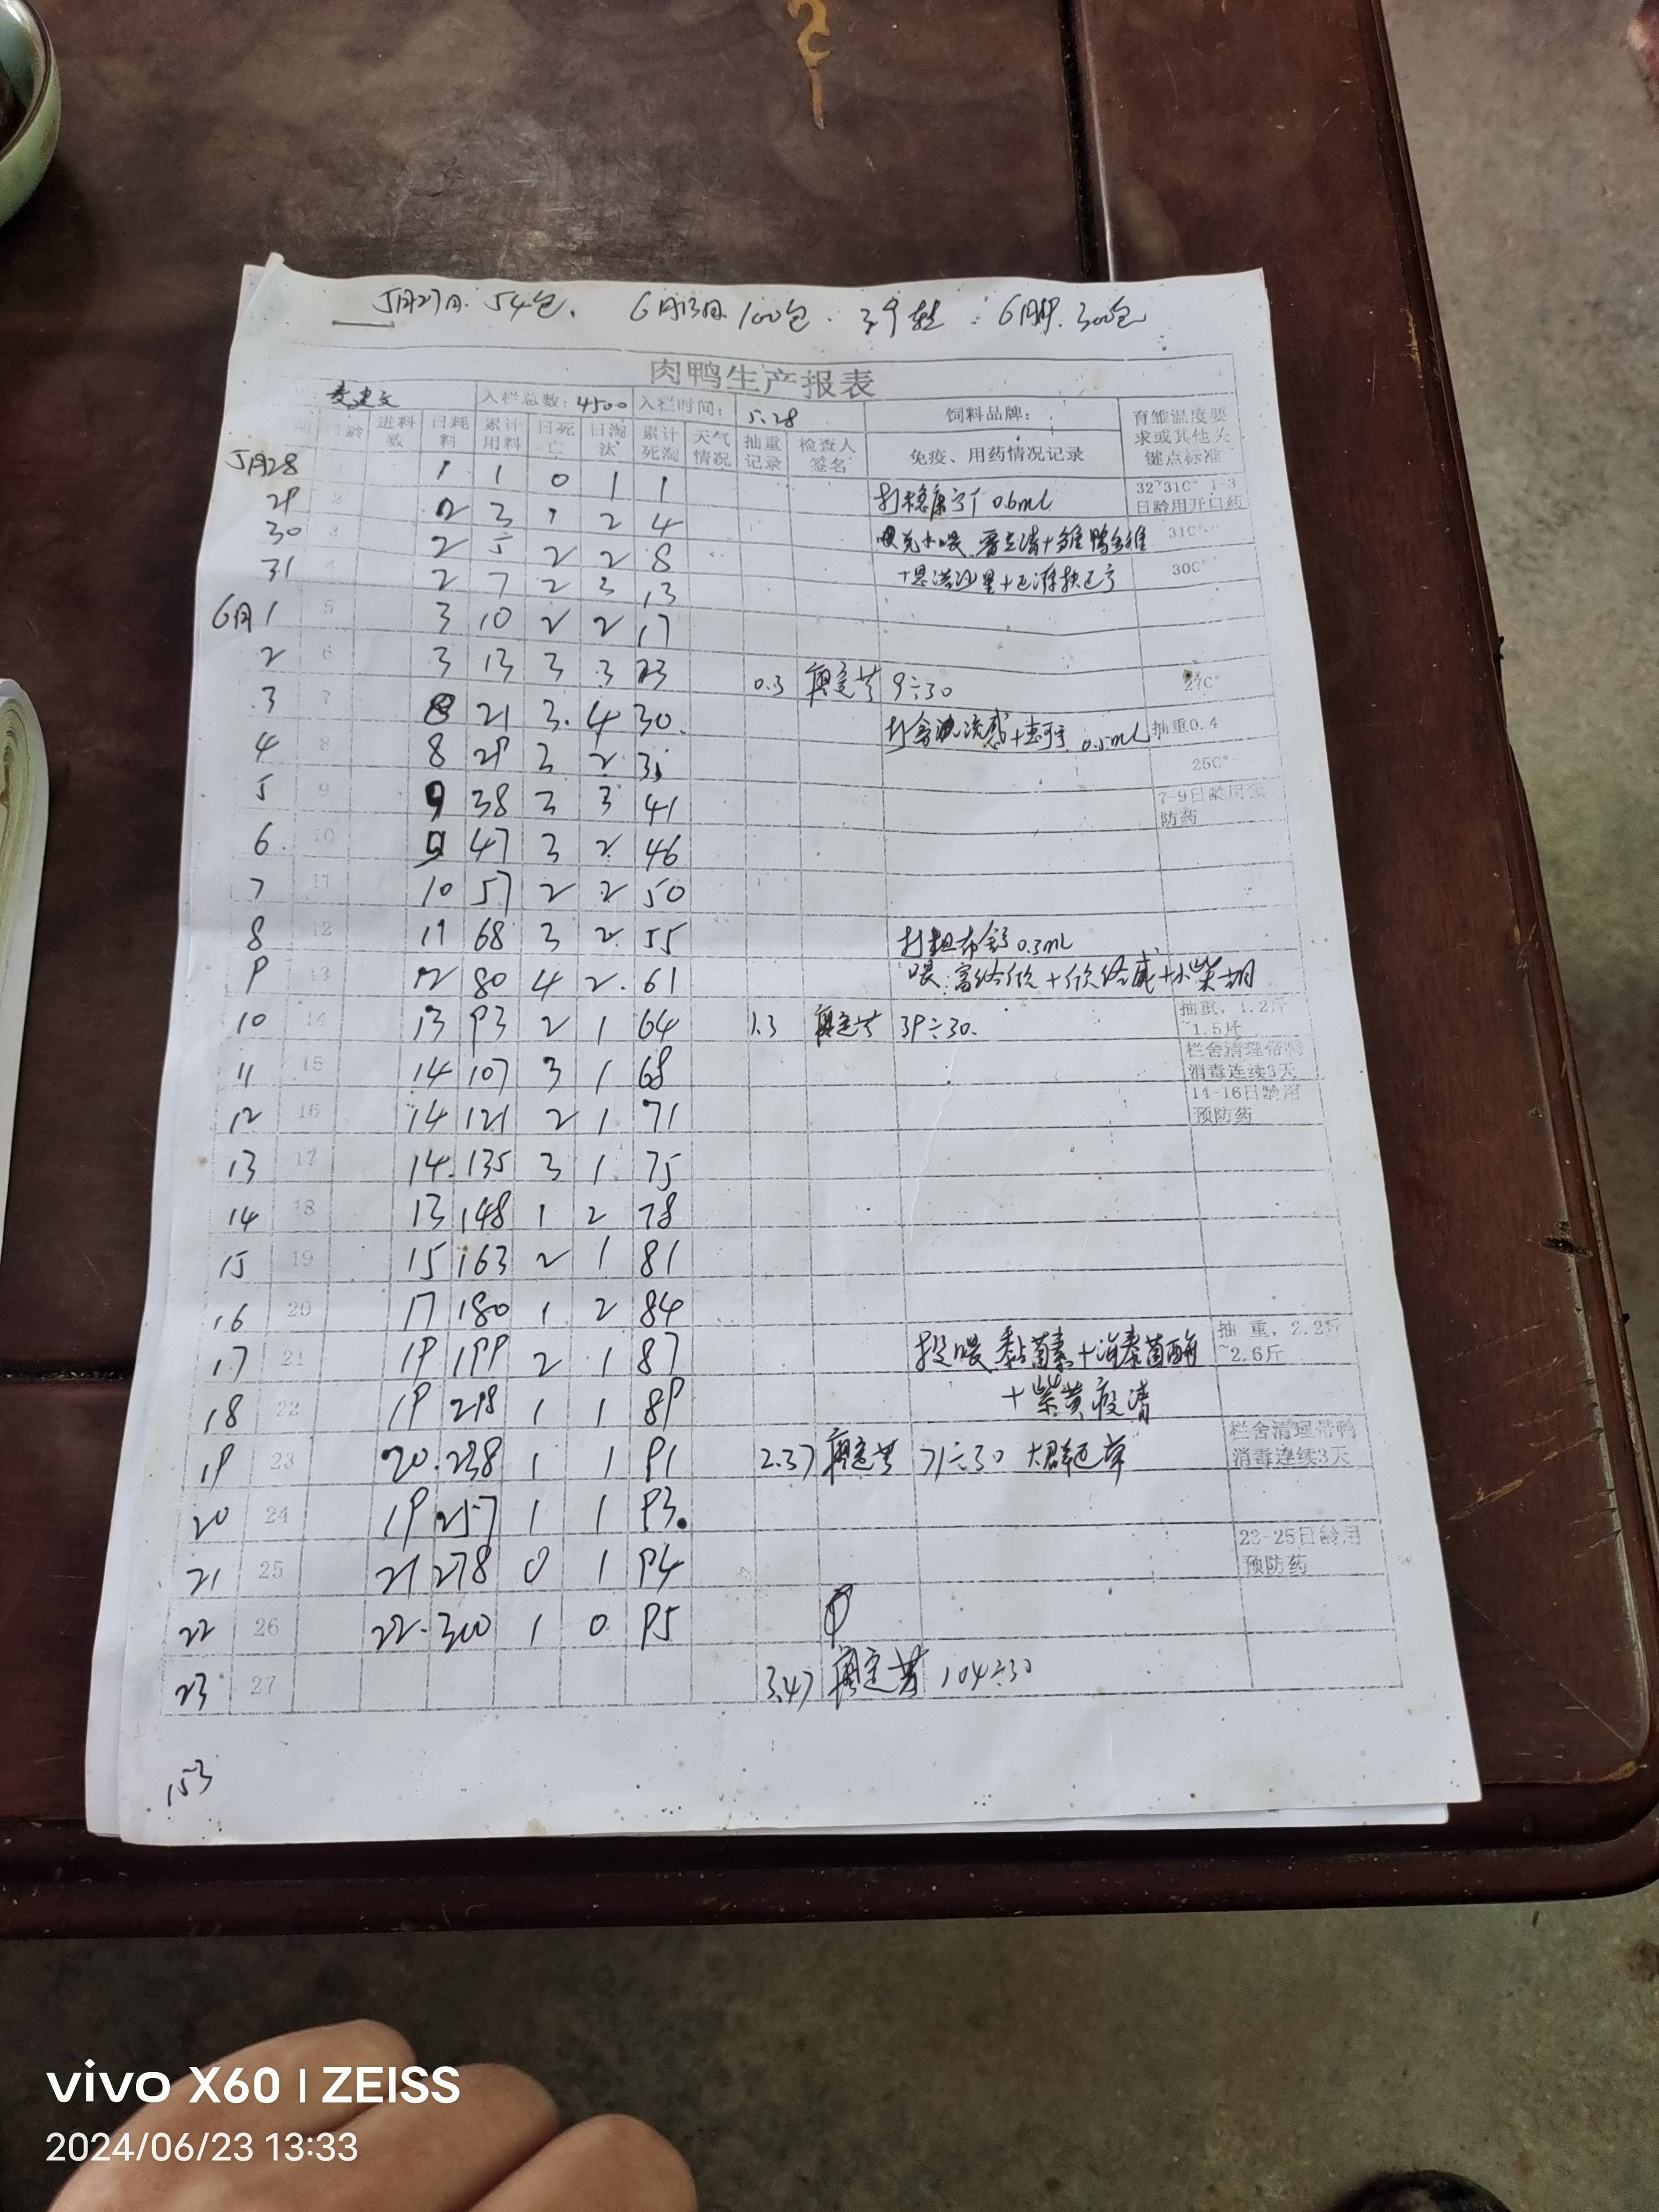 5月27日. 54包. 6月13日. 100包. 300包
肉鸭生产报表
麦建文 入栏总数: 4500 入栏时间: 5.28 饲料品牌: 育雏温度要求或其他关键点标准
日龄 进料数 日耗料 累计用料 日死亡 日淘汰 累计死淘 天气情况 抽重记录 检查人签名 免疫、用药情况记录
5月28 1 1 0 1 1
29 2 2 3 1 2 4 0.6mL 32~31C° 1-3日龄用开口药
30 3 2 5 2 2 8 31C°
31 4 2 7 2 3 13 30C°
6月1 5 3 10 2 2 17
2 6 3 13 3 3 23 0.3 9÷30 27C°
3 7 8 21 3. 4 30. 0.5mL 抽重0.4
4 8 8 29 3 2 35 25C°
5 9 9 38 3 3 41 7-9日龄用预防药
6. 10 9 47 3 2 46
7 11 10 57 2 2 50
8 12 11 68 3 2 55 0.3mL
9 13 12 80 4 2. 61 喂: +小柴胡
10 14 13 93 2 1 64 1.3 39÷30. 抽重, 1.2斤~1.5斤
11 15 14 107 3 1 68 栏舍清理带鸭消毒连续3天
12 16 14 121 2 1 71 14-16日龄用预防药
13 17 14. 135 3 1 75
14 18 13 148 1 2 78
15 19 15 163 2 1 81
16 20 17 180 1 2 84
17 21 19 199 2 1 87 投喂 黏菌素+ 抽重, 2.2斤~2.6斤
18 22 19 218 1 1 89 +柴黄疫清
19 23 20. 238 1 1 91 2.37 71÷30 栏舍清理带鸭消毒连续3天
20 24 19 257 1 1 93.
21 25 21 278 0 1 94 23-25日龄用预防药
22 26 22. 300 1 0 95
23 27 3.47 104÷30
153
vivo X60 | ZEISS
2024/06/23 13:33